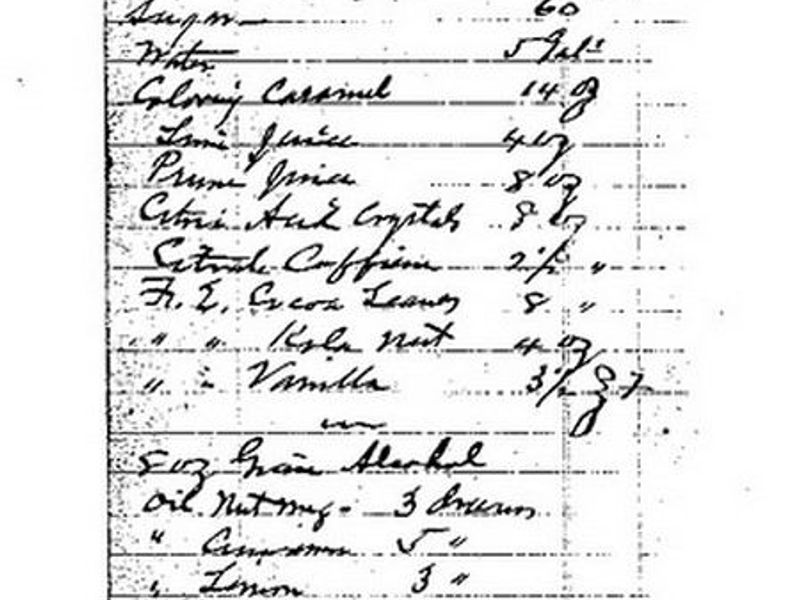 Sugar 60
Water 5 Gals
Coloring Caramel 14 oz
Lime Juice 4 oz
Prune Juice 8 oz
Citric Acid Crystals 8 oz
Citrate Caffeine 2 1/2 "
F. E. Cocoa Leaves 8 "
" " Kola Nut 4 oz
" " Vanilla 3 1/2 oz
8 oz Grain Alcohol
Oil Nutmeg - 3 drams
" Cinnamon 5 "
" Lemon 3 "